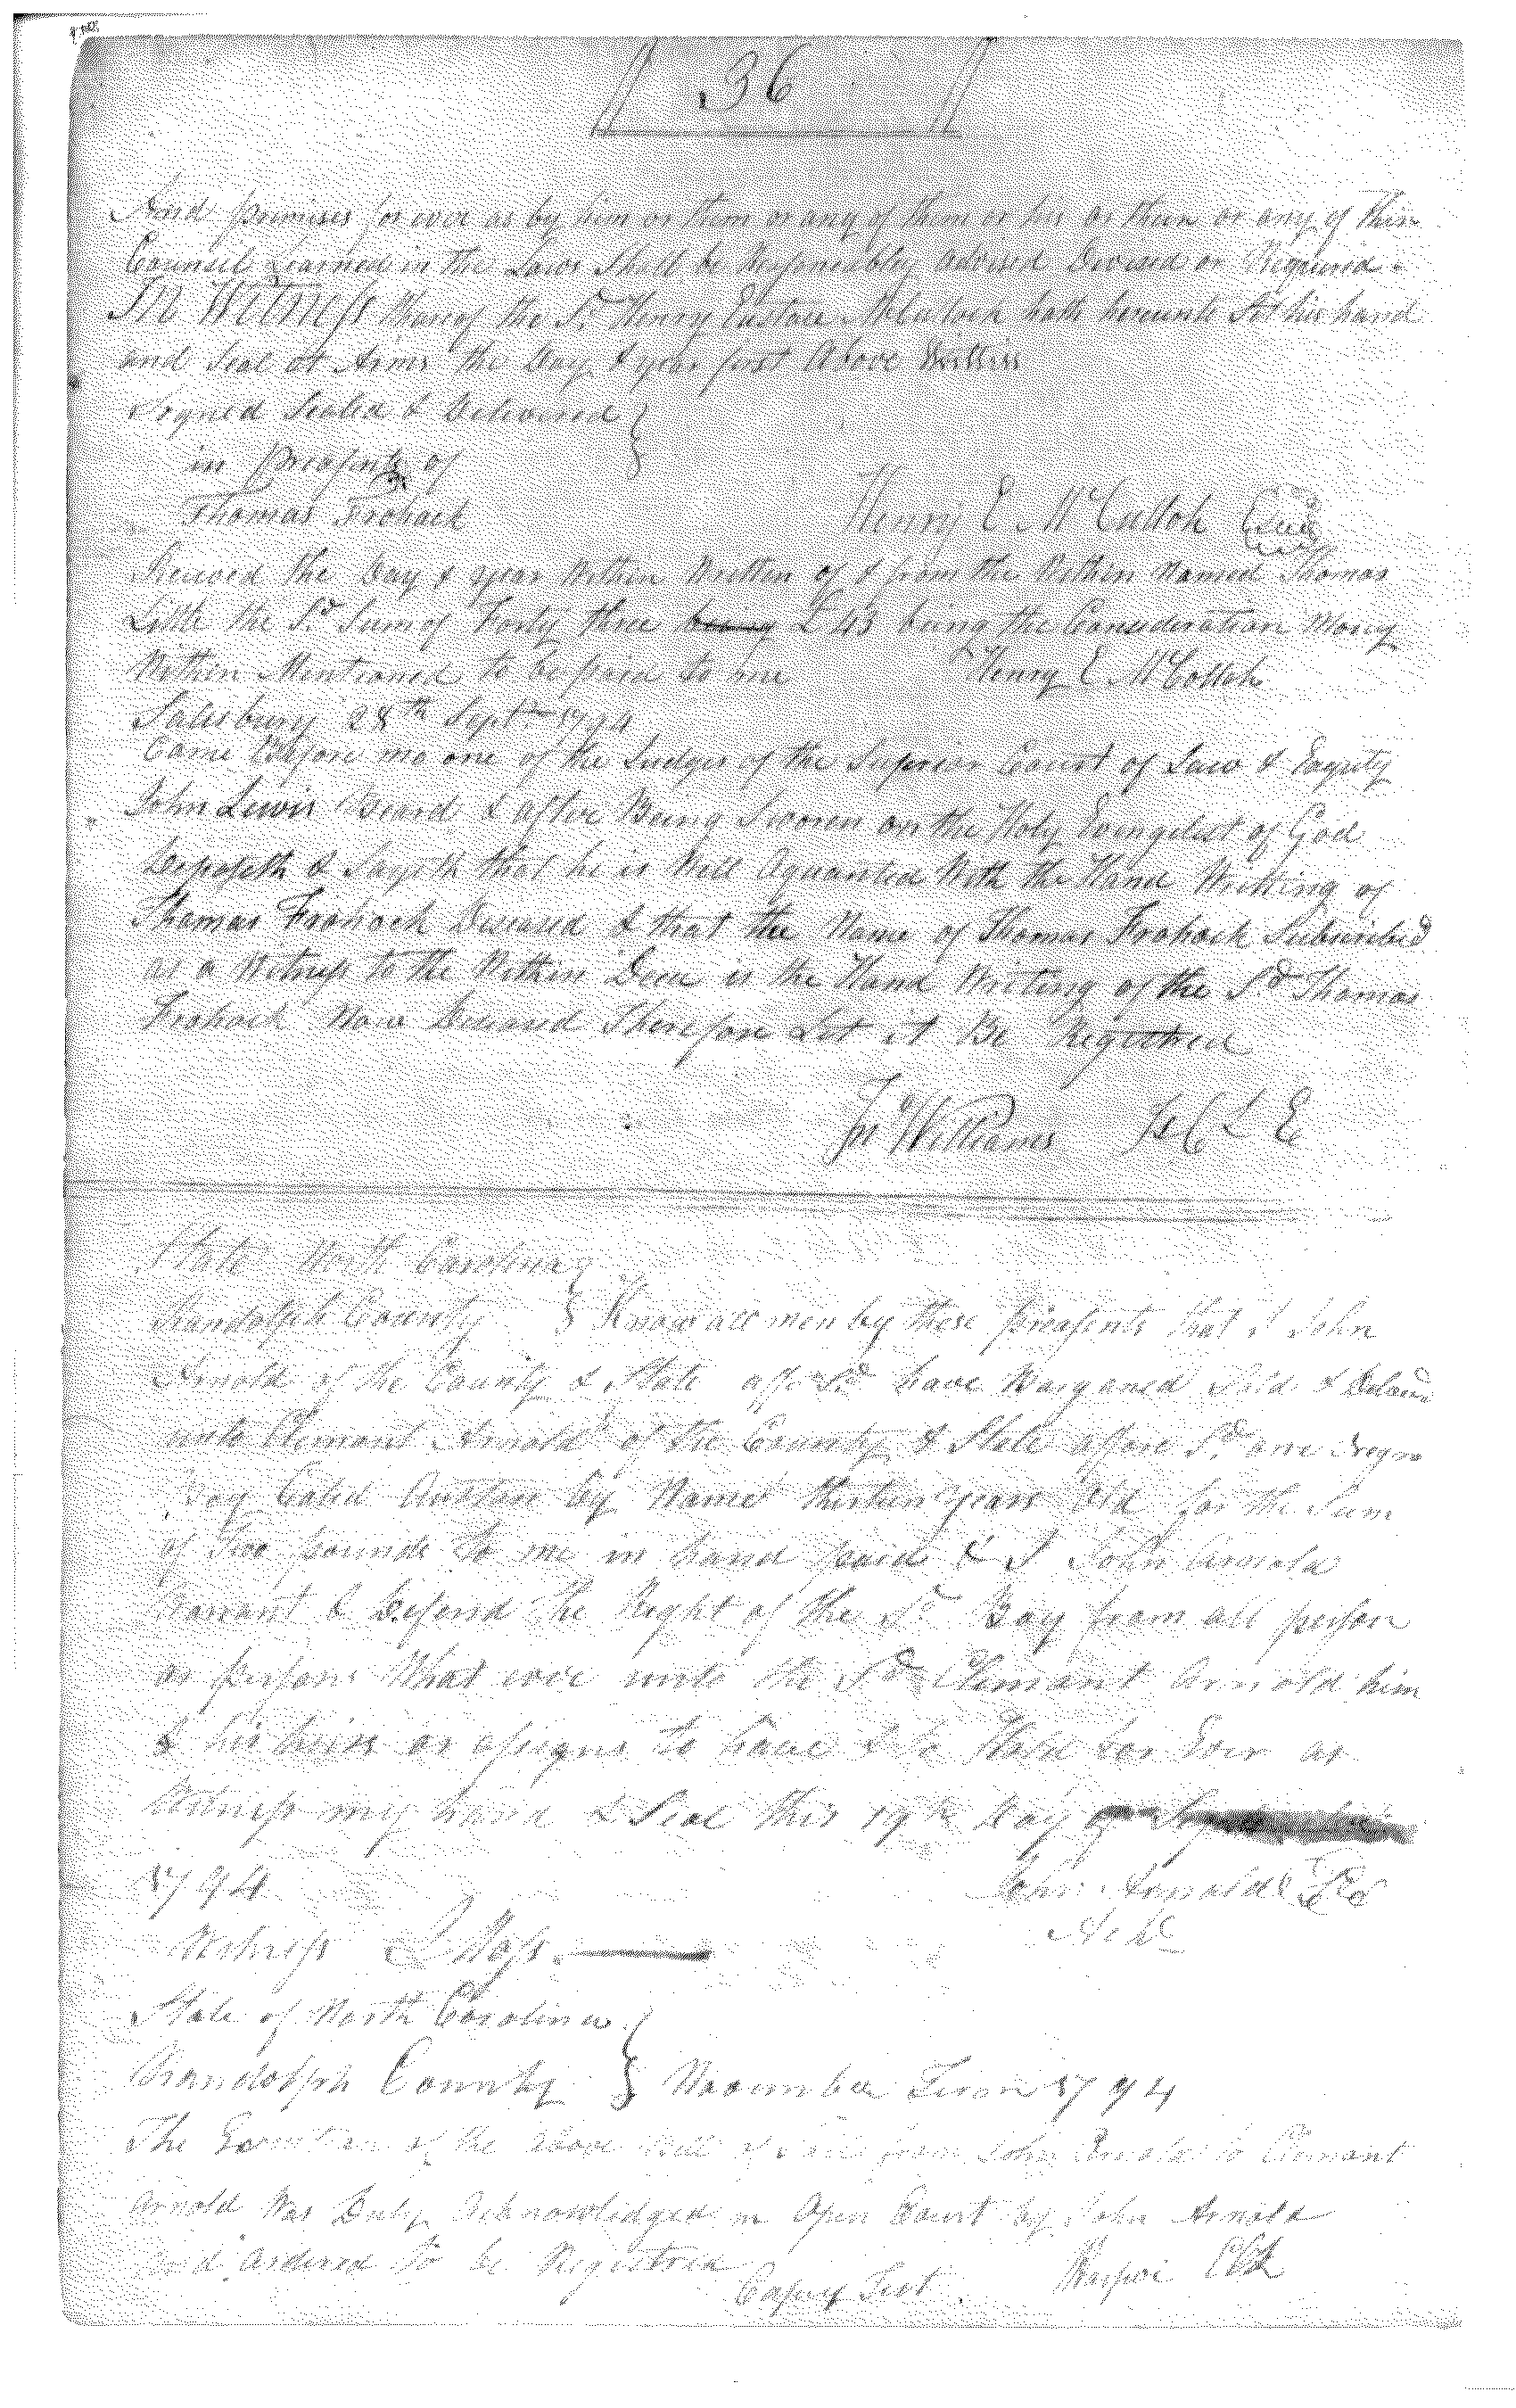 36
And premises for ever as by him or them or any of them or his or their or any of their
Council Learned in the Laws Shall be Responably advised Devised or Required.
In Witness Whereof the Sd. Henry Eustace McCulloh hath hereunto Set his hand
and Seal at Arms the Day & year first Above Written
Signed Sealed & Delivered }
in preasents of
Thomas Frohock Henry E McCulloh Seal
Received the Day & year Within Written of & from the Within Named Thomas
Little the Sd. Sum of Forty three being £43 being the Consideration Money
Within Mentioned to be paid to me Henry E McColloh
Salesbury 28th Sept 1794
Came Before me one of the Judges of the Superior Court of Law & Equity
John Lewis Beard & after Being Sworen on the Holy Evengelist of God
Deposeth & Sayeth that he is Well Aquanted With the Hand Writting of
Thomas Frohock Deseased & that the Name of Thomas Frohock Subscribed
as a Witness to the Within Deed is the Hand Writing of the Sd Thomas
Frohock Now Deceased Therefore Let it Be Registred
Jno Williams Js C L E
State North Carolina }
Randolph County } Know all men by these preasents that I John
Arnold of the County & State affore Sd. have Bargened Sold & Delaverd
unto Clemont Arnold of the County & State affore Sd. one Negro
Boy Caled Austace by Name thirteen years Old for the Sum
of Two pounds to me in hand paid & I John Arnold
Warrant & Defend the Right of the Sd Boy from all person
or persons What ever unto the Sd Clemant Arnold him
& his heirs or assigns to have & to Hold for Ever as
Witness my hand & Seal this 19th Day of September
1794 John Arnold Seal
Witness Z Ross
State of North Carolina }
Randolph County } November Term 1794
The Execution of the above Bill of Sale from John Arnold to Clemont
Arnold Was Duly Acknowledged in Open Court by John Arnold
and ordered to be Registred
Copy Test. Harper Clk